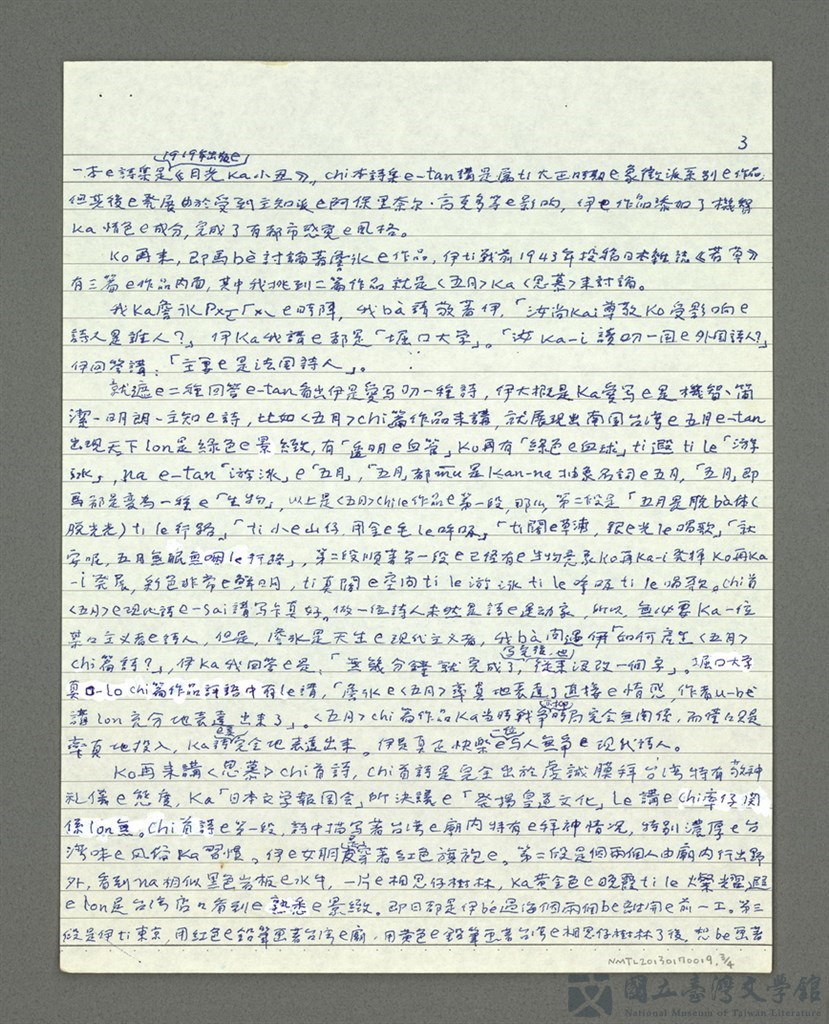 3
1919年出版e
一本e詩集是《月光Ka小丑》。chi本詩集e-tan講是屬ti大正時期e象徵派系列e作品,
但其後e發展由於受到主知派e阿保里奈尔·高克多等e影响,伊e作品添加了機智
Ka情色e成分,完成了有都市感覚e風格。
Ko再來,即馬bè討論著詹氷e作品,伊ti戰前1943年投稿日本雜誌《若草》
有三篇e作品内面,其中我挑到二篇作品就是〈五月〉Ka〈思慕〉來討論。
我Ka詹氷 e時陣,我bà請教著伊,「汝尚kai尊敬Ko受影响e
詩人是誰人?」伊Ka我講e都是「堀口大学」。「汝Ka-i讀叨一囯e外囯詩人?」
伊回答講:「主要e是法囯詩人」。
就遮e二種回答e-tan看出伊是愛写叨一種詩,伊大概是Ka愛写e是機智、簡
潔-明朗-主知e詩,比如〈五月〉chi篇作品来講,就展現出南囯台湾e五月e-tan
出現天下lon是綠色e景緻,有「透明e血管」Ko再有「綠色e血球」ti遮ti le「游
泳」,na e-tan「游泳」e「五月」,「五月」都m̄u是Kan-na抽象名詞e五月,「五月」即
馬都是变為一種e「生物」,以上是〈五月〉chi le作品e第一段,那么,第二段是「五月是脱bà体(
脱光光) ti le行路」、「ti小e山仔,用金e毛le呼吸」「ti闊e草浦,銀e光le唱歌」「
安呢,五月無眠無咽le行路」,第二段順著第一段e已経有e生物意象ko再ka-i発揮Ko再Ka
-i発展,彩色非常e鮮明,ti真闊e空间ti le游泳ti le呼吸ti le唱歌。chi首
〈五月〉e現代詩e-sai講写卡真好。做一位詩人未然是語e运动家,所以,無必要Ka一位
某々主义者e詩人,但是,詹氷是天生e現代主义者,我bà问過伊「如何产生〈五月〉
写完後,也
chi篇詩?」,伊Ka我回答e是、「無幾分鐘就完成了,從來没改一個字」。堀口大学
真o-lo chi篇作品評語中有le講,「詹氷e〈五月〉率真地表達了直接e情感,作者u-bè
講lon充分地表達出来了」。〈五月〉chi篇作品Ka当時戰争時局完全無関係,而僅々只是
率真地投入,Ka語完全地表達出来。伊是真正快樂e写人無争e現代詩人。
Ko再来講〈思慕〉chi首詩,chi首詩是完全出於虔誠膜拜台湾特有敬神
礼儀e態度,Ka「日本文学報囯会」所決議e「発揚皇道文化」le講e chi率仔関
係lon無。chi首詩e第一段,詩中描写著台湾e廟内特有e拜神情況,特別濃厚e台
湾味e風俗Ka習慣。伊e女朋友穿著紅色旗袍e。第二段是個兩個人由廟内行出野
外,看到na相似黑色岩板e水牛,一片e相思仔樹林,Ka黄金色e晚霞ti le燦耀遮
e lon是台湾店々看到e熟悉e景緻。即日都是伊bé過海個兩個be離開e前一工。第三
段是伊ti東京,用紅色e鉛筆画著台湾e廟,用黄色e鉛筆画著台湾e相思仔樹林了後。想be画著
NMTL20130170019, 3/4
國立臺灣文學館
National Museum of Taiwan Literature